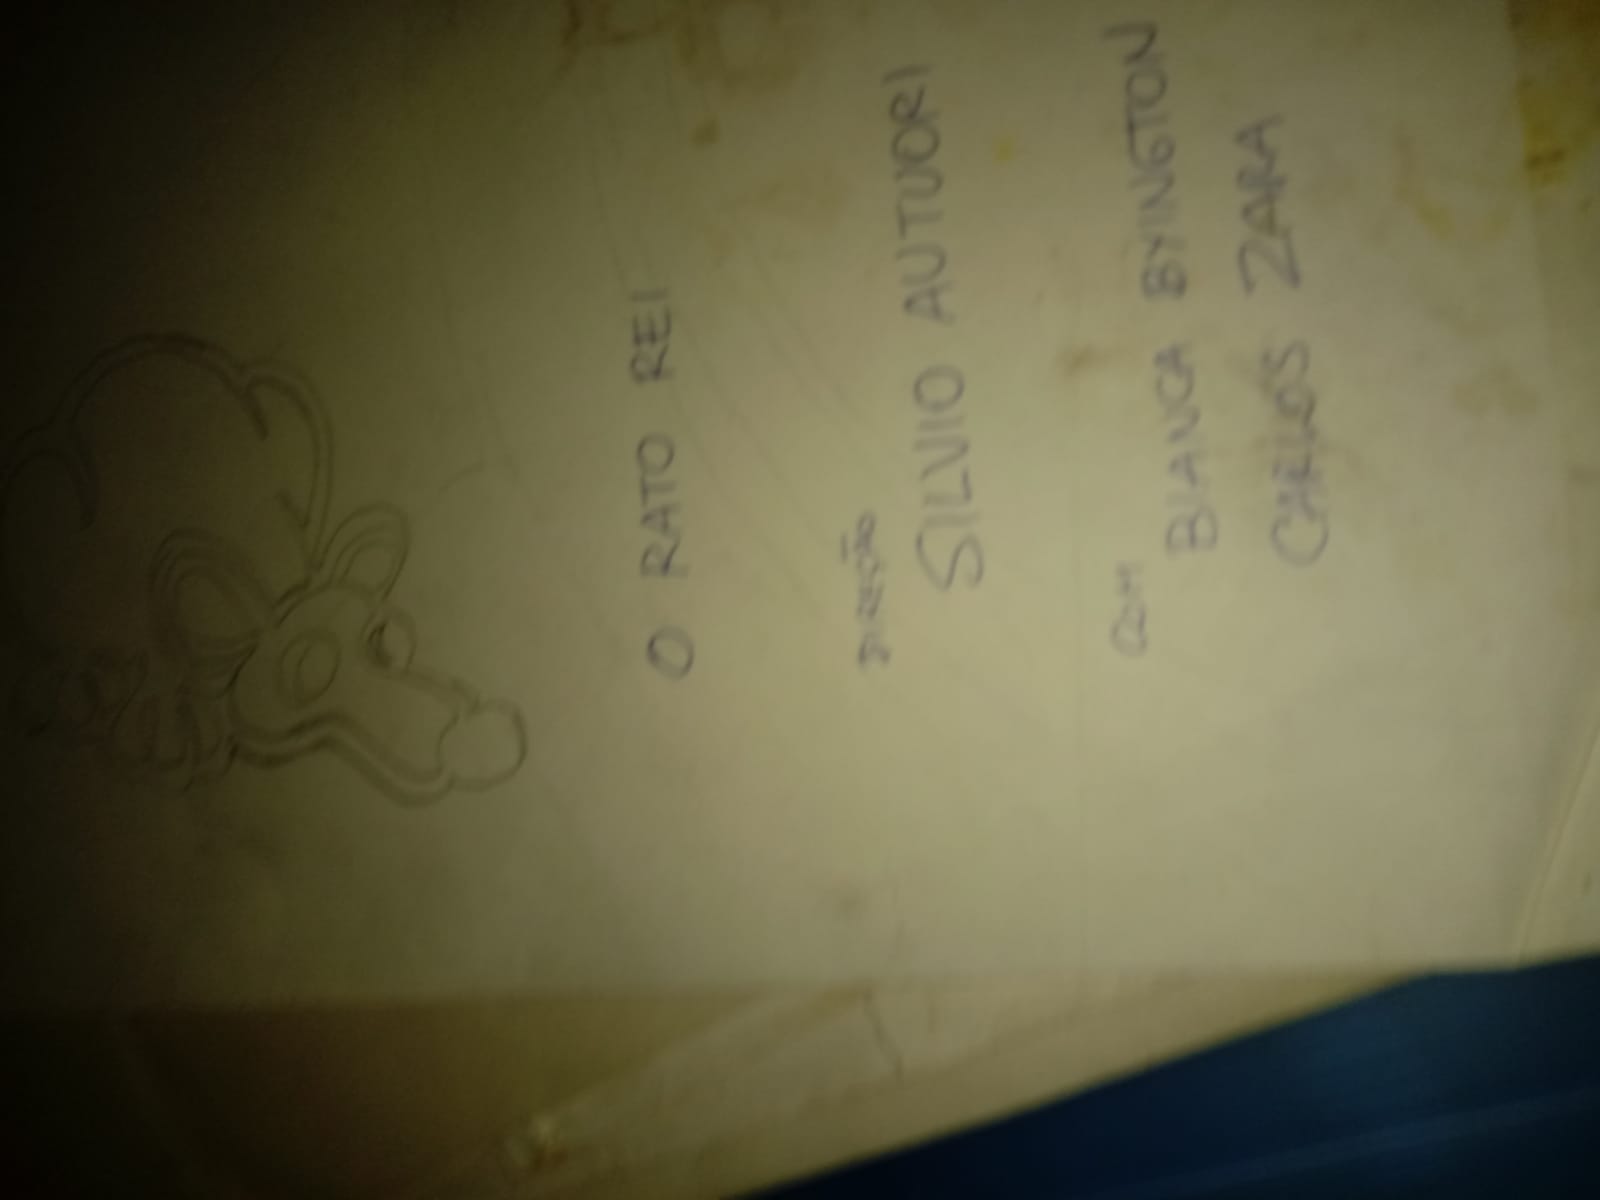 O RATO REI
DIREÇÃO
SILVIO AUTUORI
COM
BIANCA BYINGTON
CARLOS ZARA